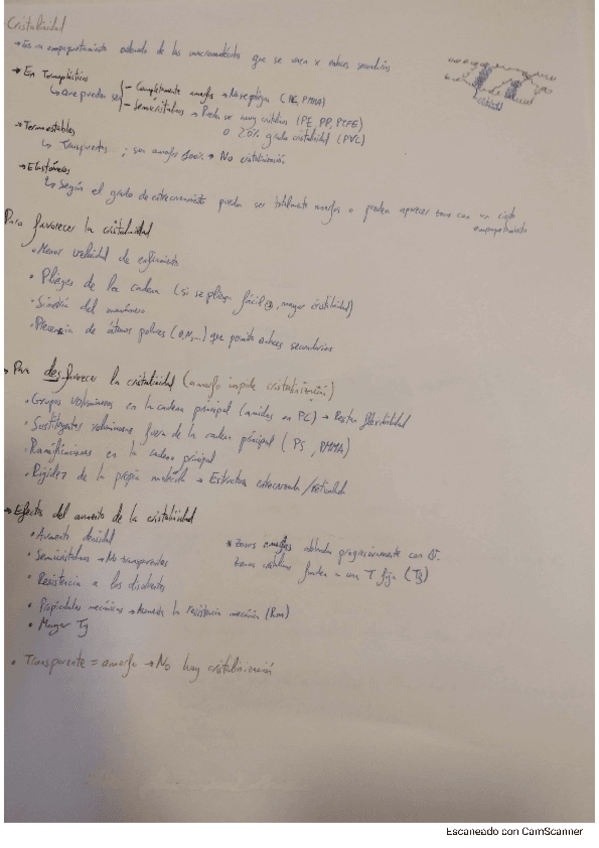 Cristalinidad
→ Es un empaquetamiento ordenado de las macromoléculas que se unen x enlaces secundarios
→ En Termoplásticos
↳ que pueden ser
- Completamente amorfos → No se pliegan (PC, PMMA)
- Semicristalinos → Pueden ser muy cristalinos (PE, PP, PTFE)
o 20% grado cristalinidad (PVC)
→ Termoestables
↳ Transparentes ; son amorfos 100% → No cristalinización
→ Elastómeros
↳ Según el grado de entrecruzamiento pueden ser totalmente amorfos o pueden aparecer zonas con un cierto
empaquetamiento
Para favorecer la cristalinidad
• Menor velocidad de enfriamiento
• Pliegues de la cadena (si se pliega fácil, mayor cristalinidad)
• Simetría del monómero
• Presencia de átomos polares (O, N, ...) que permita enlaces secundarios
→ Para desfavorecer la cristalinidad (amorfo impide cristalinización)
• Grupos voluminosos en la cadena principal (anillos en PC) → Restan flexibilidad
• Sustituyentes voluminosos fuera de la cadena principal (PS, PMMA)
• Ramificaciones en la cadena principal
• Rigidez de la propia molécula → Estructura entrecruzada/reticulada
→ Efectos del aumento de la cristalinidad
• Aumento densidad
• Semicristalinos → No transparentes
• Resistencia a los disolventes
• Propiedades mecánicas → Aumenta la resistencia mecánica (Rm)
• Mayor Tg
* zonas amorfas ablandan progresivamente con
zonas cristalinas funden a una T fija (Tf)
• Transparente = amorfo → No hay cristalinización
Escaneado con CamScanner